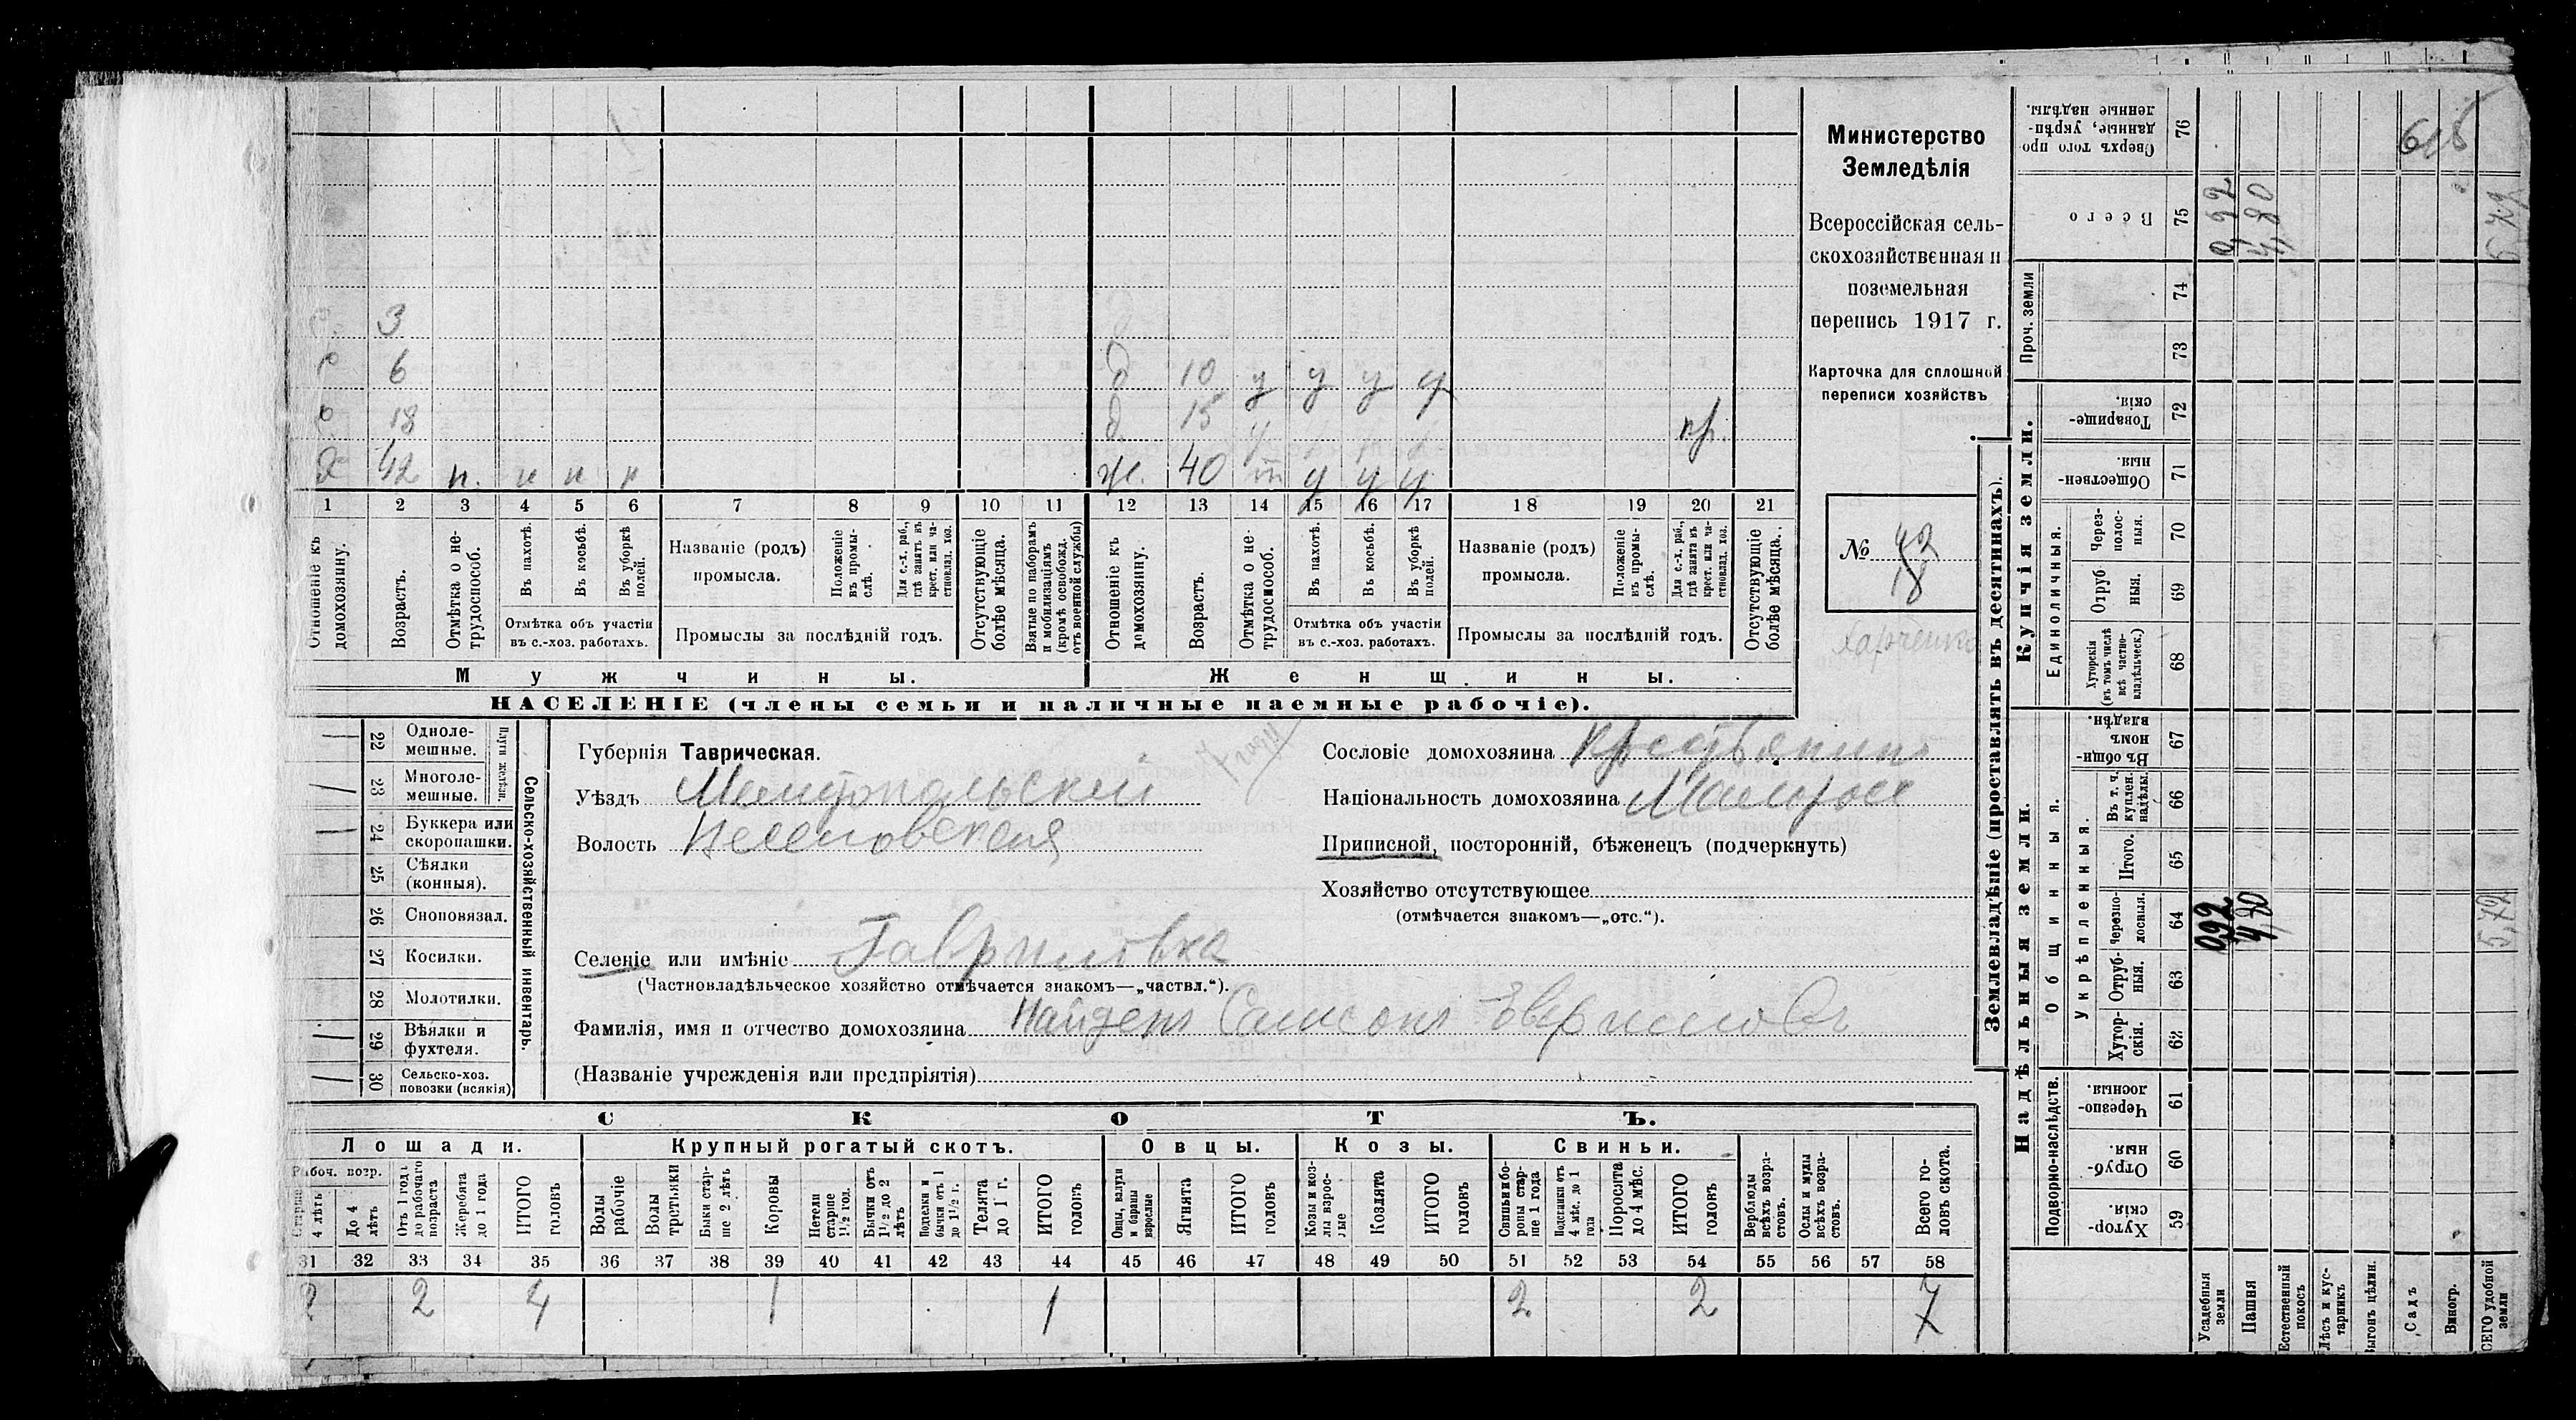 Министерство
Земледѣлія
Всероссійская сель-
скохозяйственная и
поземельная
перепись 1917 г.
Карточка для сплошной
переписи хозяйствъ
№ 42
18
Харченко
3
6 д 10 у у у у
18 д. 15 пр.
Х 42 п. п п п ж. 40 т у у у
1 2 3 4 5 6 7 8 9 10 11 12 13 14 15 16 17 18 19 20 21
Отношеніе къ домохозяину.
Возрастъ.
Отмѣтка о не-трудоспособ.
Въ пахотѣ.
Въ косьбѣ.
Въ уборкѣ полей.
Отмѣтка объ участіи
въ с.-хоз. работахъ.
Названіе (родъ)
промысла.
Положеніе въ промы-слѣ.
Для с.-х. раб., гдѣ занятъ въ крест. или ча-стновлад. хоз.
Промыслы за послѣдній годъ.
Отсутствующіе болѣе мѣсяца.
Взятые по наборамъ и мобилизаціямъ (кромѣ освобожд. отъ военной службы)
Отношеніе къ домохозяину.
Возрастъ.
Отмѣтка о не-трудоспособ.
Въ пахотѣ.
Въ косьбѣ.
Въ уборкѣ полей.
Отмѣтка объ участіи
въ с.-хоз. работахъ.
Названіе (родъ)
промысла.
Положеніе въ промы-слѣ.
Для с.-х. раб., гдѣ занята въ крест. или ча-стновлад. хоз.
Промыслы за послѣдній годъ.
Отсутствующіе болѣе мѣсяца.
Мужчины. Женщины.
НАСЕЛЕНІЕ (члены семьи и наличные наемные рабочіе).
Сельско-хозяйственный инвентарь.
Плуги желѣзн.
22 Одноле-мешные.
23 Многоле-мешные.
24 Буккера или скоропашки.
25 Сѣялки (конныя).
26 Сноповязал.
27 Косилки.
28 Молотилки.
29 Вѣялки и фухтеля.
30 Сельско-хоз. повозки (всякія)
Губернія Таврическая.
Уѣздъ Мелитопольскій
Волость
Сословіе домохозяина Крестьянинъ
Національность домохозяина Малорос
Приписной, посторонній, бѣженецъ (подчеркнуть)
Хозяйство отсутствующее
(отмѣчается знакомъ—„отс.“).
Селеніе или имѣніе Гавриловка
(Частновладѣльческое хозяйство отмѣчается знакомъ—„частвл.“).
Фамилія, имя и отчество домохозяина Найденъ Самсонъ
(Названіе учрежденія или предпріятія)
СКОТЪ.
Лошади. Крупный рогатый скотъ. Овцы. Козы. Свиньи.
Рабоч. возр.
Старше 4 лѣтъ
До 4 лѣтъ
Отъ 1 года до рабочаго возраста
Жеребята до 1 года
ИТОГО головъ
Волы рабочіе
Волы третьяки
Быки стар-ше 2 лѣтъ
Коровы
Нетели старше 1½ год.
Бычки отъ 1½ до 2 лѣтъ
Подтелки и бычки отъ 1 до 1½ г.
Телята до 1 г.
ИТОГО головъ
Овцы, валухи и бараны взрослые
Ягнята
ИТОГО головъ
Козы и коз-лы взрос-лые
Козлята
ИТОГО головъ
Свиньи и бо-ровы стар-ше 1 года
Подсвинки отъ 4 мѣс. до 1 года
Поросята до 4 мѣс.
ИТОГО головъ
Верблюды всѣхъ возра-стовъ.
Ослы и мулы всѣхъ возра-стовъ.
Всего го-ловъ скота.
31 32 33 34 35 36 37 38 39 40 41 42 43 44 45 46 47 48 49 50 51 52 53 54 55 56 57 58
2 2 4 1 1 2 2 7
Землевладѣніе (проставлять въ десятинахъ).
Купчія земли.
Надѣльныя земли.
Сверхъ того про-данные, укрѣп-ленные надѣлы. 76
Всего 75
Проч. земли 74 73
Товарище-скія. 72
Обществен-ныя. 71
Единоличныя.
Через-полос-ныя. 70
Отруб-ныя. 69
Хуторскія (въ томъ числѣ всѣ частно-владѣльческ.) 68
Общинныя.
Въ общи-номъ владѣн. 67
Укрѣпленныя.
Въ т. ч. куплен. надѣлы. 66
Итого. 65
Черезпо-лосныя. 64
Отруб-ныя. 63
Хутор-скія. 62
Подворно-наслѣдств.
Черезпо-лосныя. 61
Отруб-ныя. 60
Хутор-скія. 59
Усадебныя земли
Пашня
Естественный покосъ
Лѣсъ и кус-тарникъ
Выгонъ цѣлин.
Садъ
Виногр.
ВСЕГО удобной земли
615
0,92
4,80
5,72
0,92
4,80
5,72